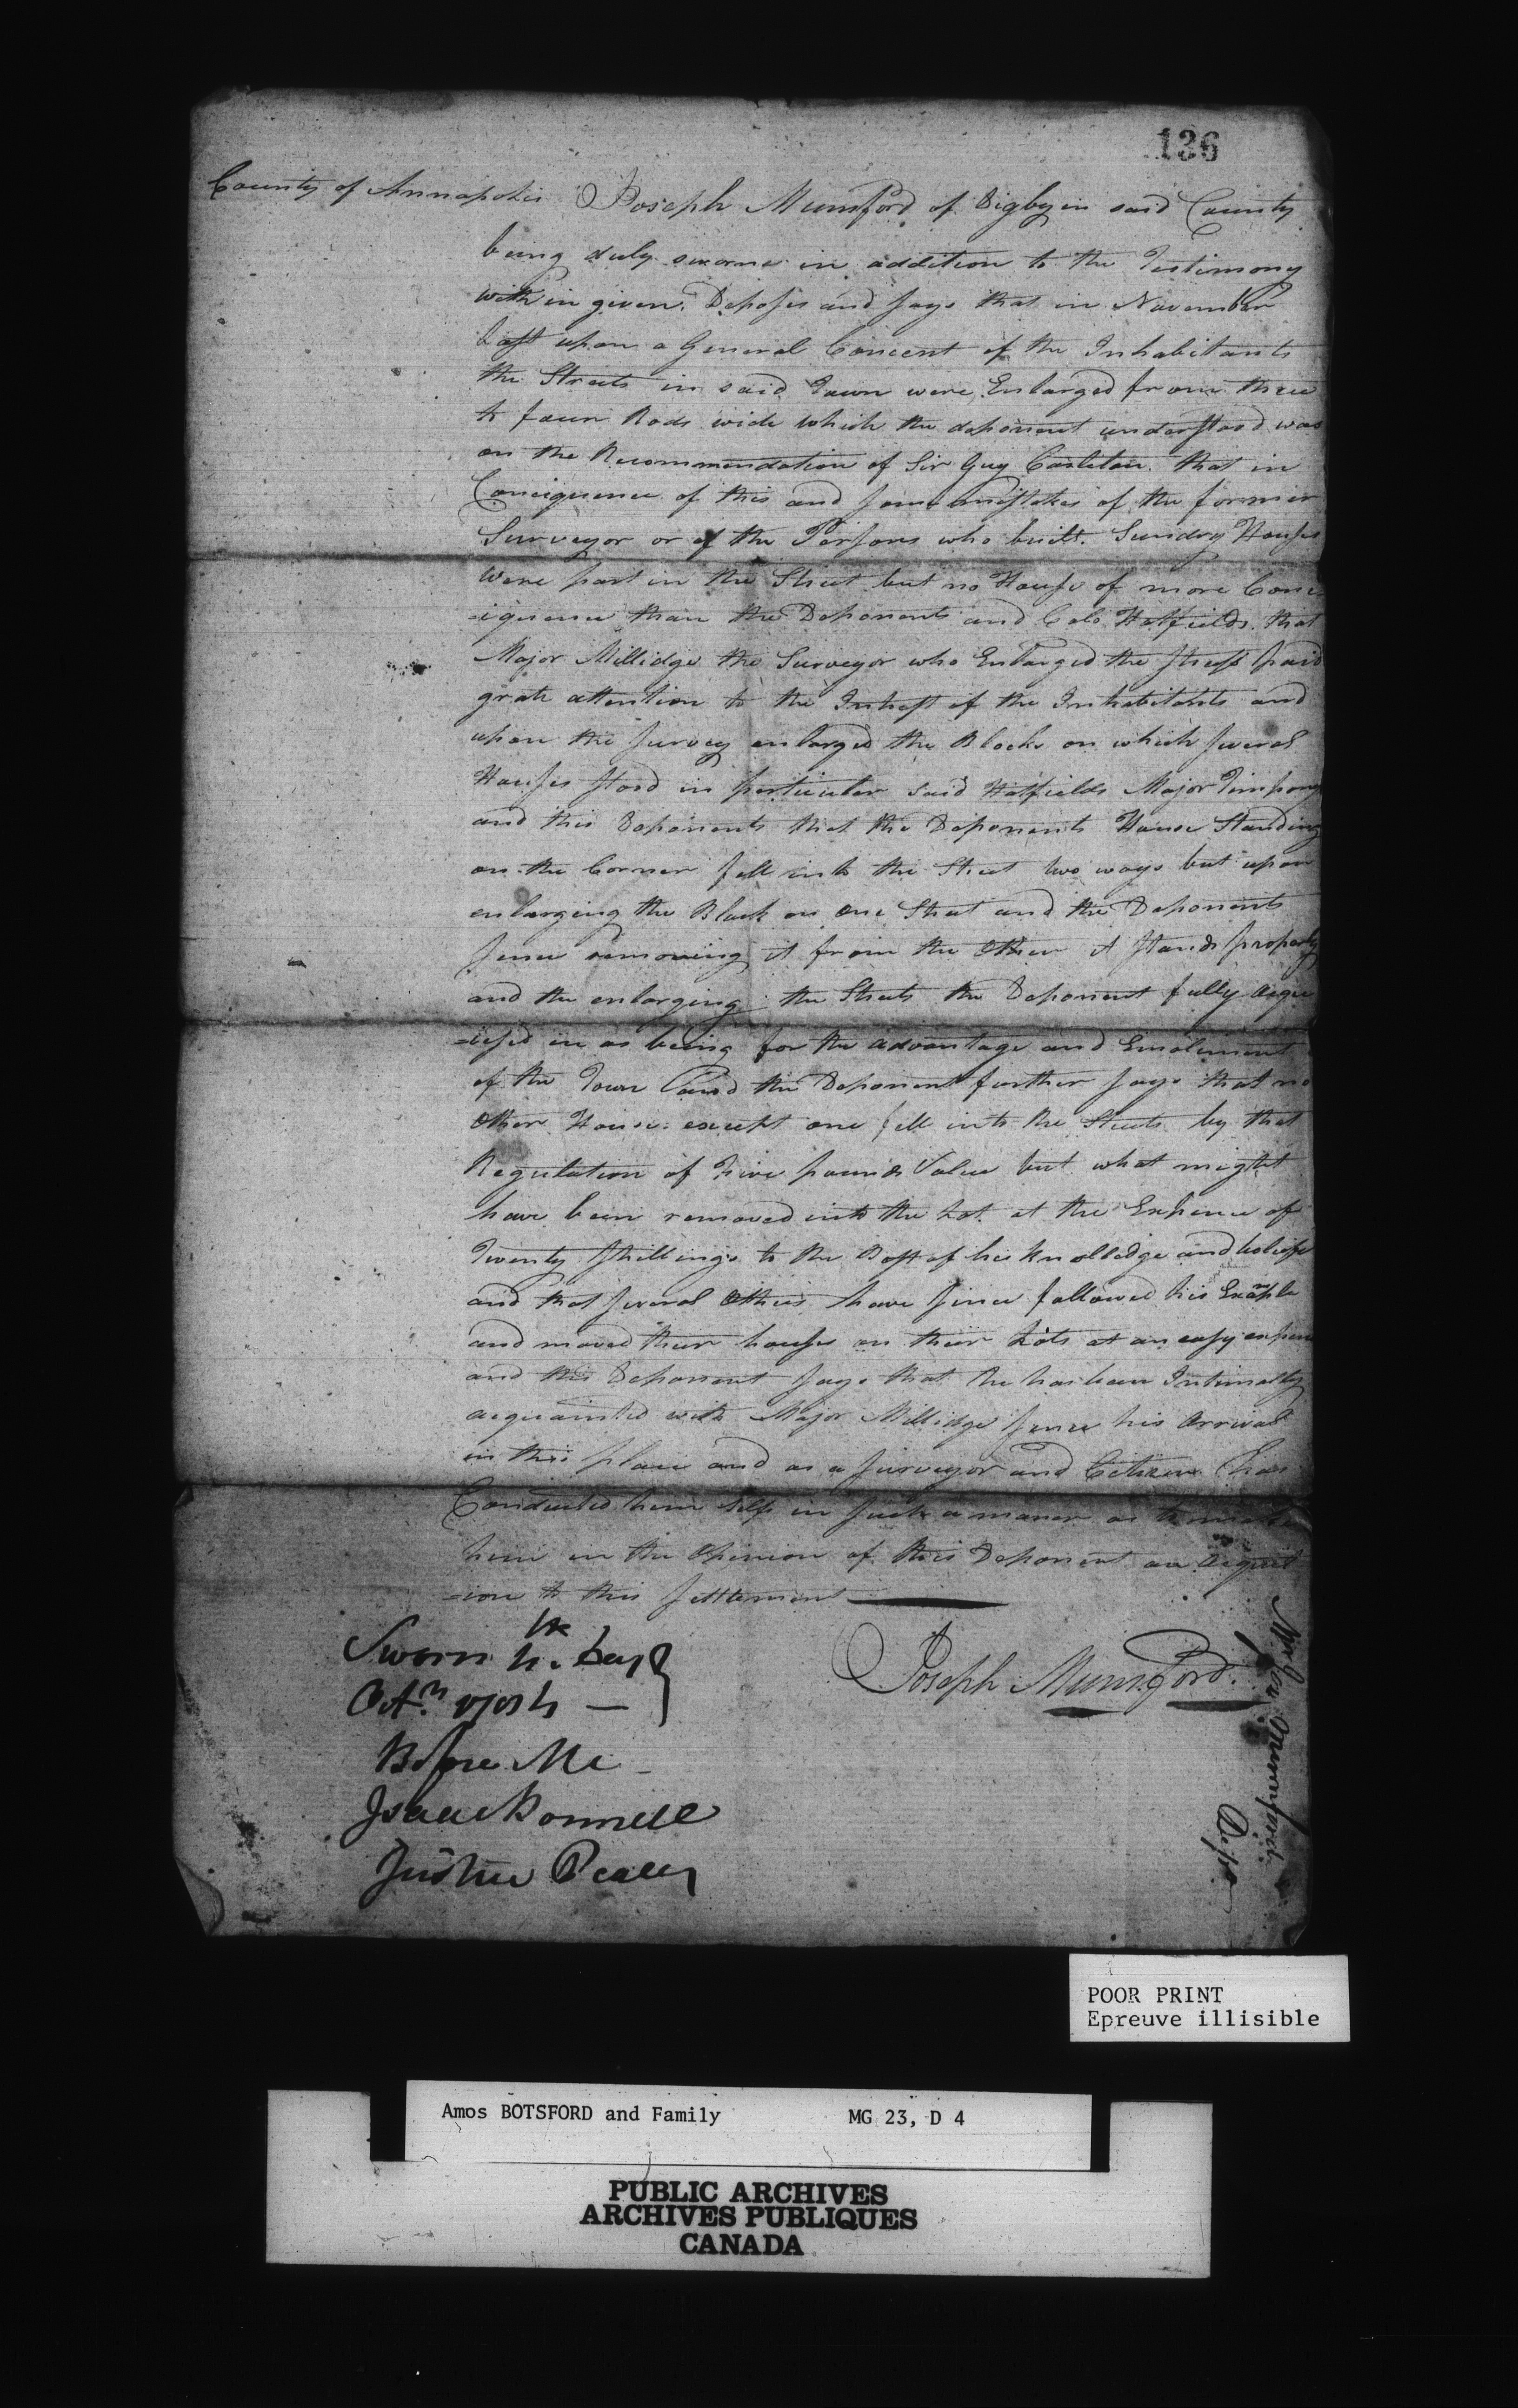 136
County of Annapolis Joseph Mumford of Digby in said County
being duly sworne in addition to the Testimony
with in given. Deposes and says that in November
last upon a General Concent of the Inhabitants
the Streets in said Town were Enlarged from three
to four Rods wide which the deponent understood was
on the Recommendation of Sir Guy Carleton. that in
Consiquence of this and some mistakes of the former
Surveyor or of the Persons who built. Sundry Houses
were part in the Street but no House of more Cons
-iquence than the Deponents and Colo Hatfields that
Major Millidge the Surveyor who Enlarged the streets paid
grate attention to the Intrest of the Inhabitants and
upon the survey enlarged the Blocks on which several
Houses stood in perticuler said Hatfields Major Timpony
and this Deponents that the Deponents House Standing
on the Corner fell into the Street two ways but upon
enlarging the Block on one Street and the Deponents
sence removing it from the Other it stands properly
and the enlarging the Streets the Deponent fully acqui
-esed in as being for the advantage and Emolument
of the Town and the Deponent further says that no
Other House except one fell into the Streets by that
Regulation of Five pounds Value but what might
have been removed into the Lot at the Expence of
Twenty shillings to the Best of his knolledge and beliefe
and that several Others have since followed his Example
and moved their houses on their Lots at an easy expence
and this Deponent says that he has been Intimately
acquainted with Major Millidge sence his arrival
in this place and as a surveyor and Citizen has
Conducted him self in such a maner as to make
him in the Opinion of this Deponent an acquisit
-ion to this settlement
Sworn Day
Octr 1784
Before Me
Isaac Bonnell
Justice Peace
Joseph Mumford
Mumford
POOR PRINT
Epreuve illisible
Amos BOTSFORD and Family MG 23, D 4
PUBLIC ARCHIVES
ARCHIVES PUBLIQUES
CANADA